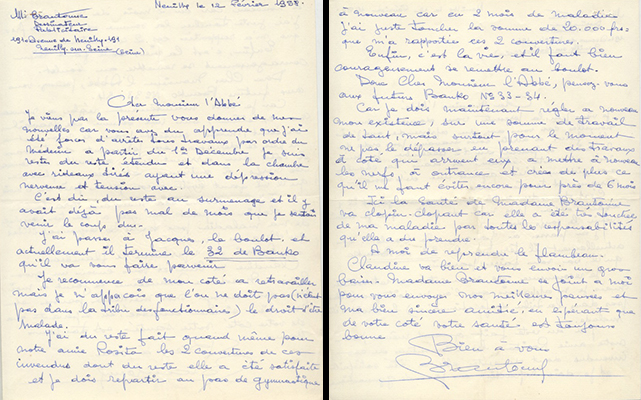 Neuilly le 12 Février 1958.
Mr Brantonne
Dessinateur
Publicitaire
191 Avenue de Neuilly-191
Neuilly-sur-Seine (Seine)
Cher Monsieur l'Abbé
Je viens par la présente vous donner de mes
nouvelles car vous avez du apprendre que j'ai
été forcé d'arrêter tous travaux par ordre du
Médecin à partir du 1er Décembre je suis
resté du reste étendu et dans la chambre
avec rideaux tirés ayant une dépression
nerveuse et tension avec.
C'est dû du reste au surmenage et il y
avait déjà pas mal de mois que je sentais
venir le coup dur.
J'ai passé à Jacques, le boulot, et
actuellement il termine le 32 de Banko
qu'il va vous faire parvenir
Je recommence de mon côté à retravailler
mais je m'aperçois que l'on ne doit pas (n'étant
pas dans la série des fonctionnaires) le droit d'être
malade.
J'ai du reste fait quand même pour
notre amie Rosita les 2 couvertures de ces
invendus dont du reste elle a été satisfaite
et je dois repartir au pas de gymnastique
à nouveau car en 2 mois de maladie
j'ai juste toucher la somme de 20.000 frs
que m'a rapportée ces 2 couvertures.
Enfin, c'est la vie, et il faut bien
courageusement se remettre au boulot.
Donc Cher Monsieur l'Abbé, pensez-vous
aux futurs Banko Nos 33-34.
Car je dois maintenant régler à nouveau
mon existence, sur une somme de travail
de tant, mais surtout pour le moment
ne pas le dépasser en prenant des travaux
à côté qui arrivent eux, à mettre à nouveau
les nerfs à outrance et crées de plus ce
qu'il me faut éviter, encore pour près de 6 mois
Ici la Santé de Madame Brantonne
va clopin-clopant car elle a été très touchée
de ma maladie par toutes les responsabilités
qu'elle a du prendre.
A moi de reprendre le flambeau.
Claudine va bien et vous envoi un gros
baiser. Madame Brantonne se joint à moi
pour vous envoyer nos meilleures pensées et
ma bien sincère amitié, en espérant que
de votre côté votre santé est toujours
bonne
Bien à vous
Brantonne